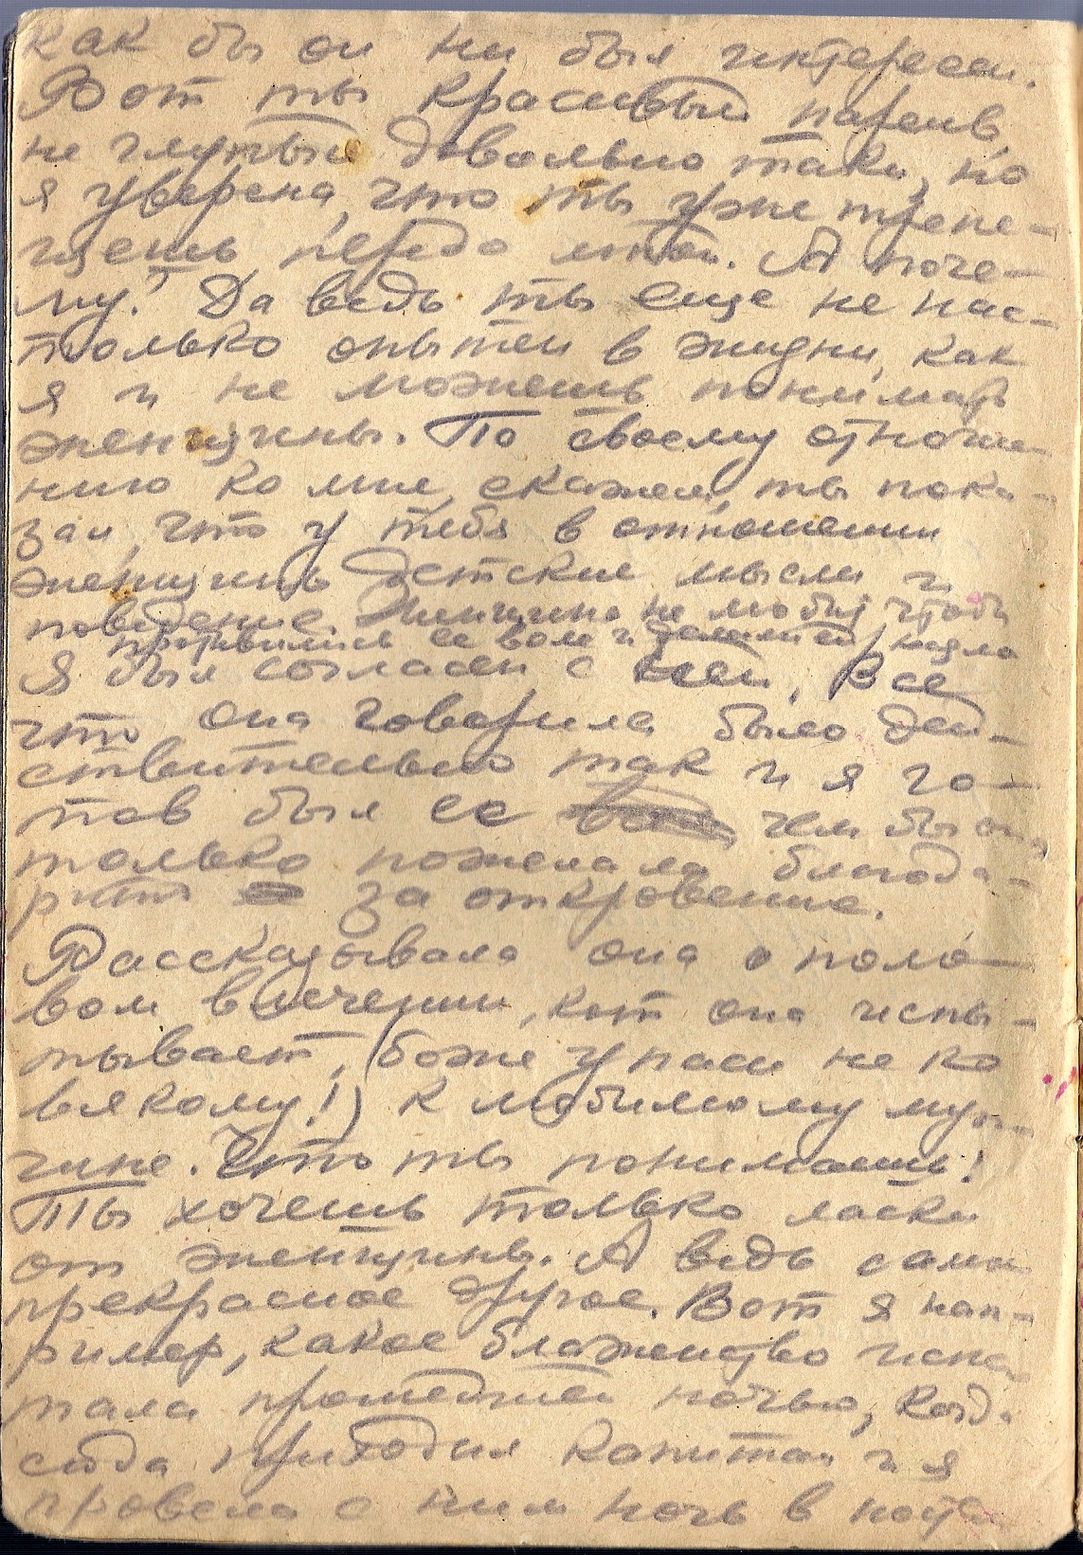 как бы он ни был интересен.
Вот ты красивый парень,
не глупый довольно таки, но
я уверена, что ты уже трепе-
щешь передо мной. А поче-
му? Да ведь ты еще не нас-
только опытен в жизни, как
я и не можешь понимать
женщины. По своему отноше-
нию ко мне, скажем, ты пока-
зал, что у тебя в отношении
женщины детские мысли и
поведение. Женщина не любит, чтобы
противились ее воле и
Я был согласен с ней. Все
что она говорила было дей-
ствительно так и я го-
тов был ее чем бы она
только пожелала благода-
рить за откровение.
Рассказывала она о поло-
вом влечении, кот она испы-
тывает, (боже упаси не ко
всякому!) к любимому муж-
чине. Что ты понимаешь!
Ты хочешь только ласки
от женщины. А ведь самое
прекрасное другое. Вот я нап-
ример, какое блаженство испы
тала прошедшей ночью, когда
сюда приходил капитан и я
провела с ним ночь в